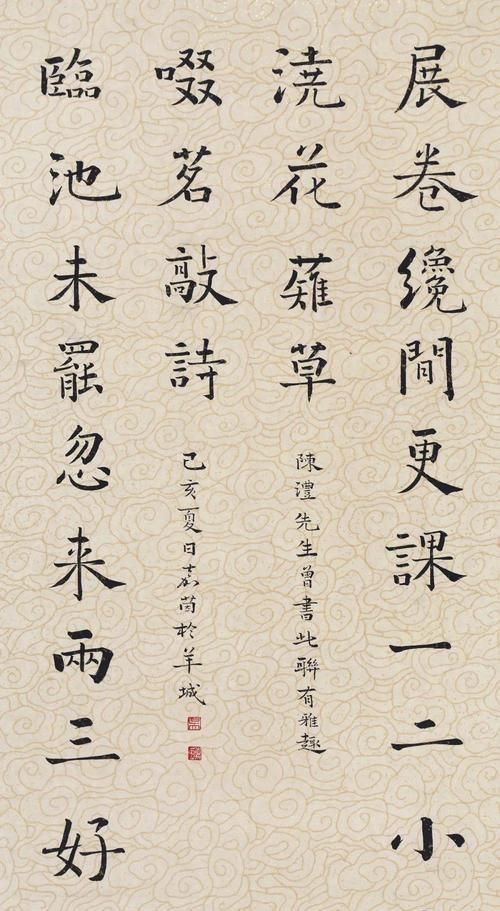 展卷纔閒更課一二小
澆花薙草
臨池未罷忽来兩三好
啜茗敲詩
陳澧先生曾書此聯有雅趣
己亥夏日嘉茵於羊城